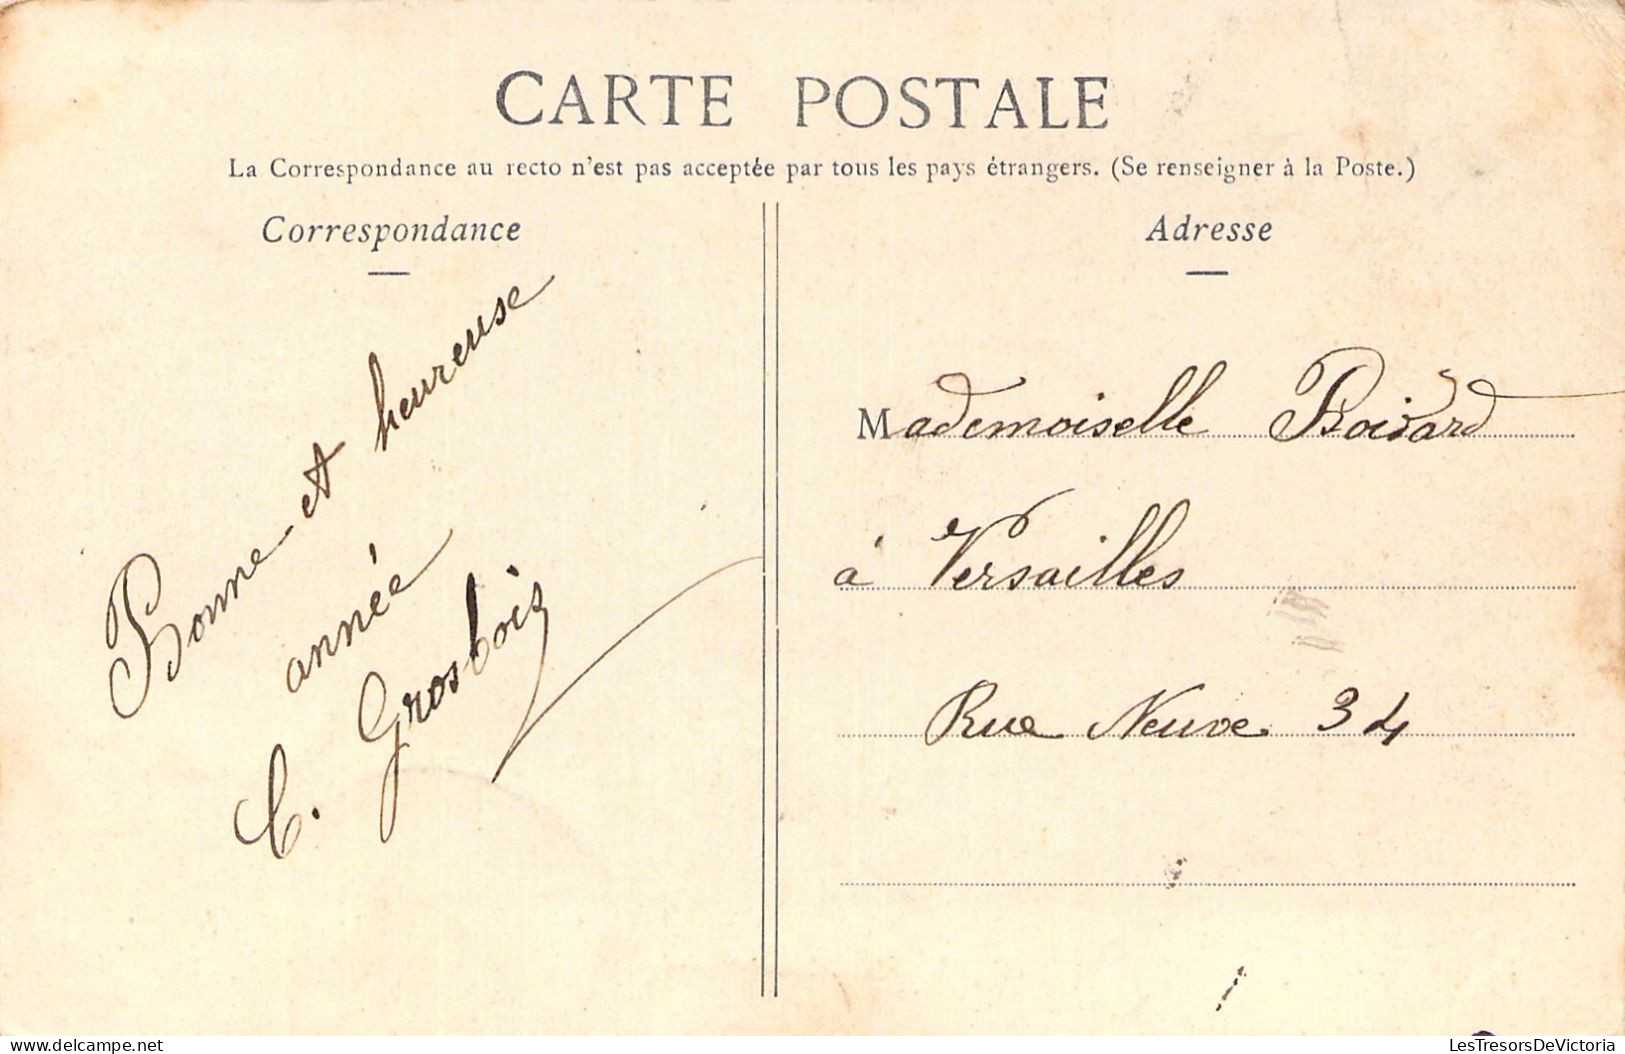 CARTE POSTALE
La Correspondance au recto n'est pas acceptée par tous les pays étrangers. (Se renseigner à la Poste.)
Correspondance
Bonne et heureuse
année
C. Grosbois
Adresse
Mademoiselle Boisard
à Versailles
Rue Neuve 34
delcampe.net
LesTresorsDeVictoria